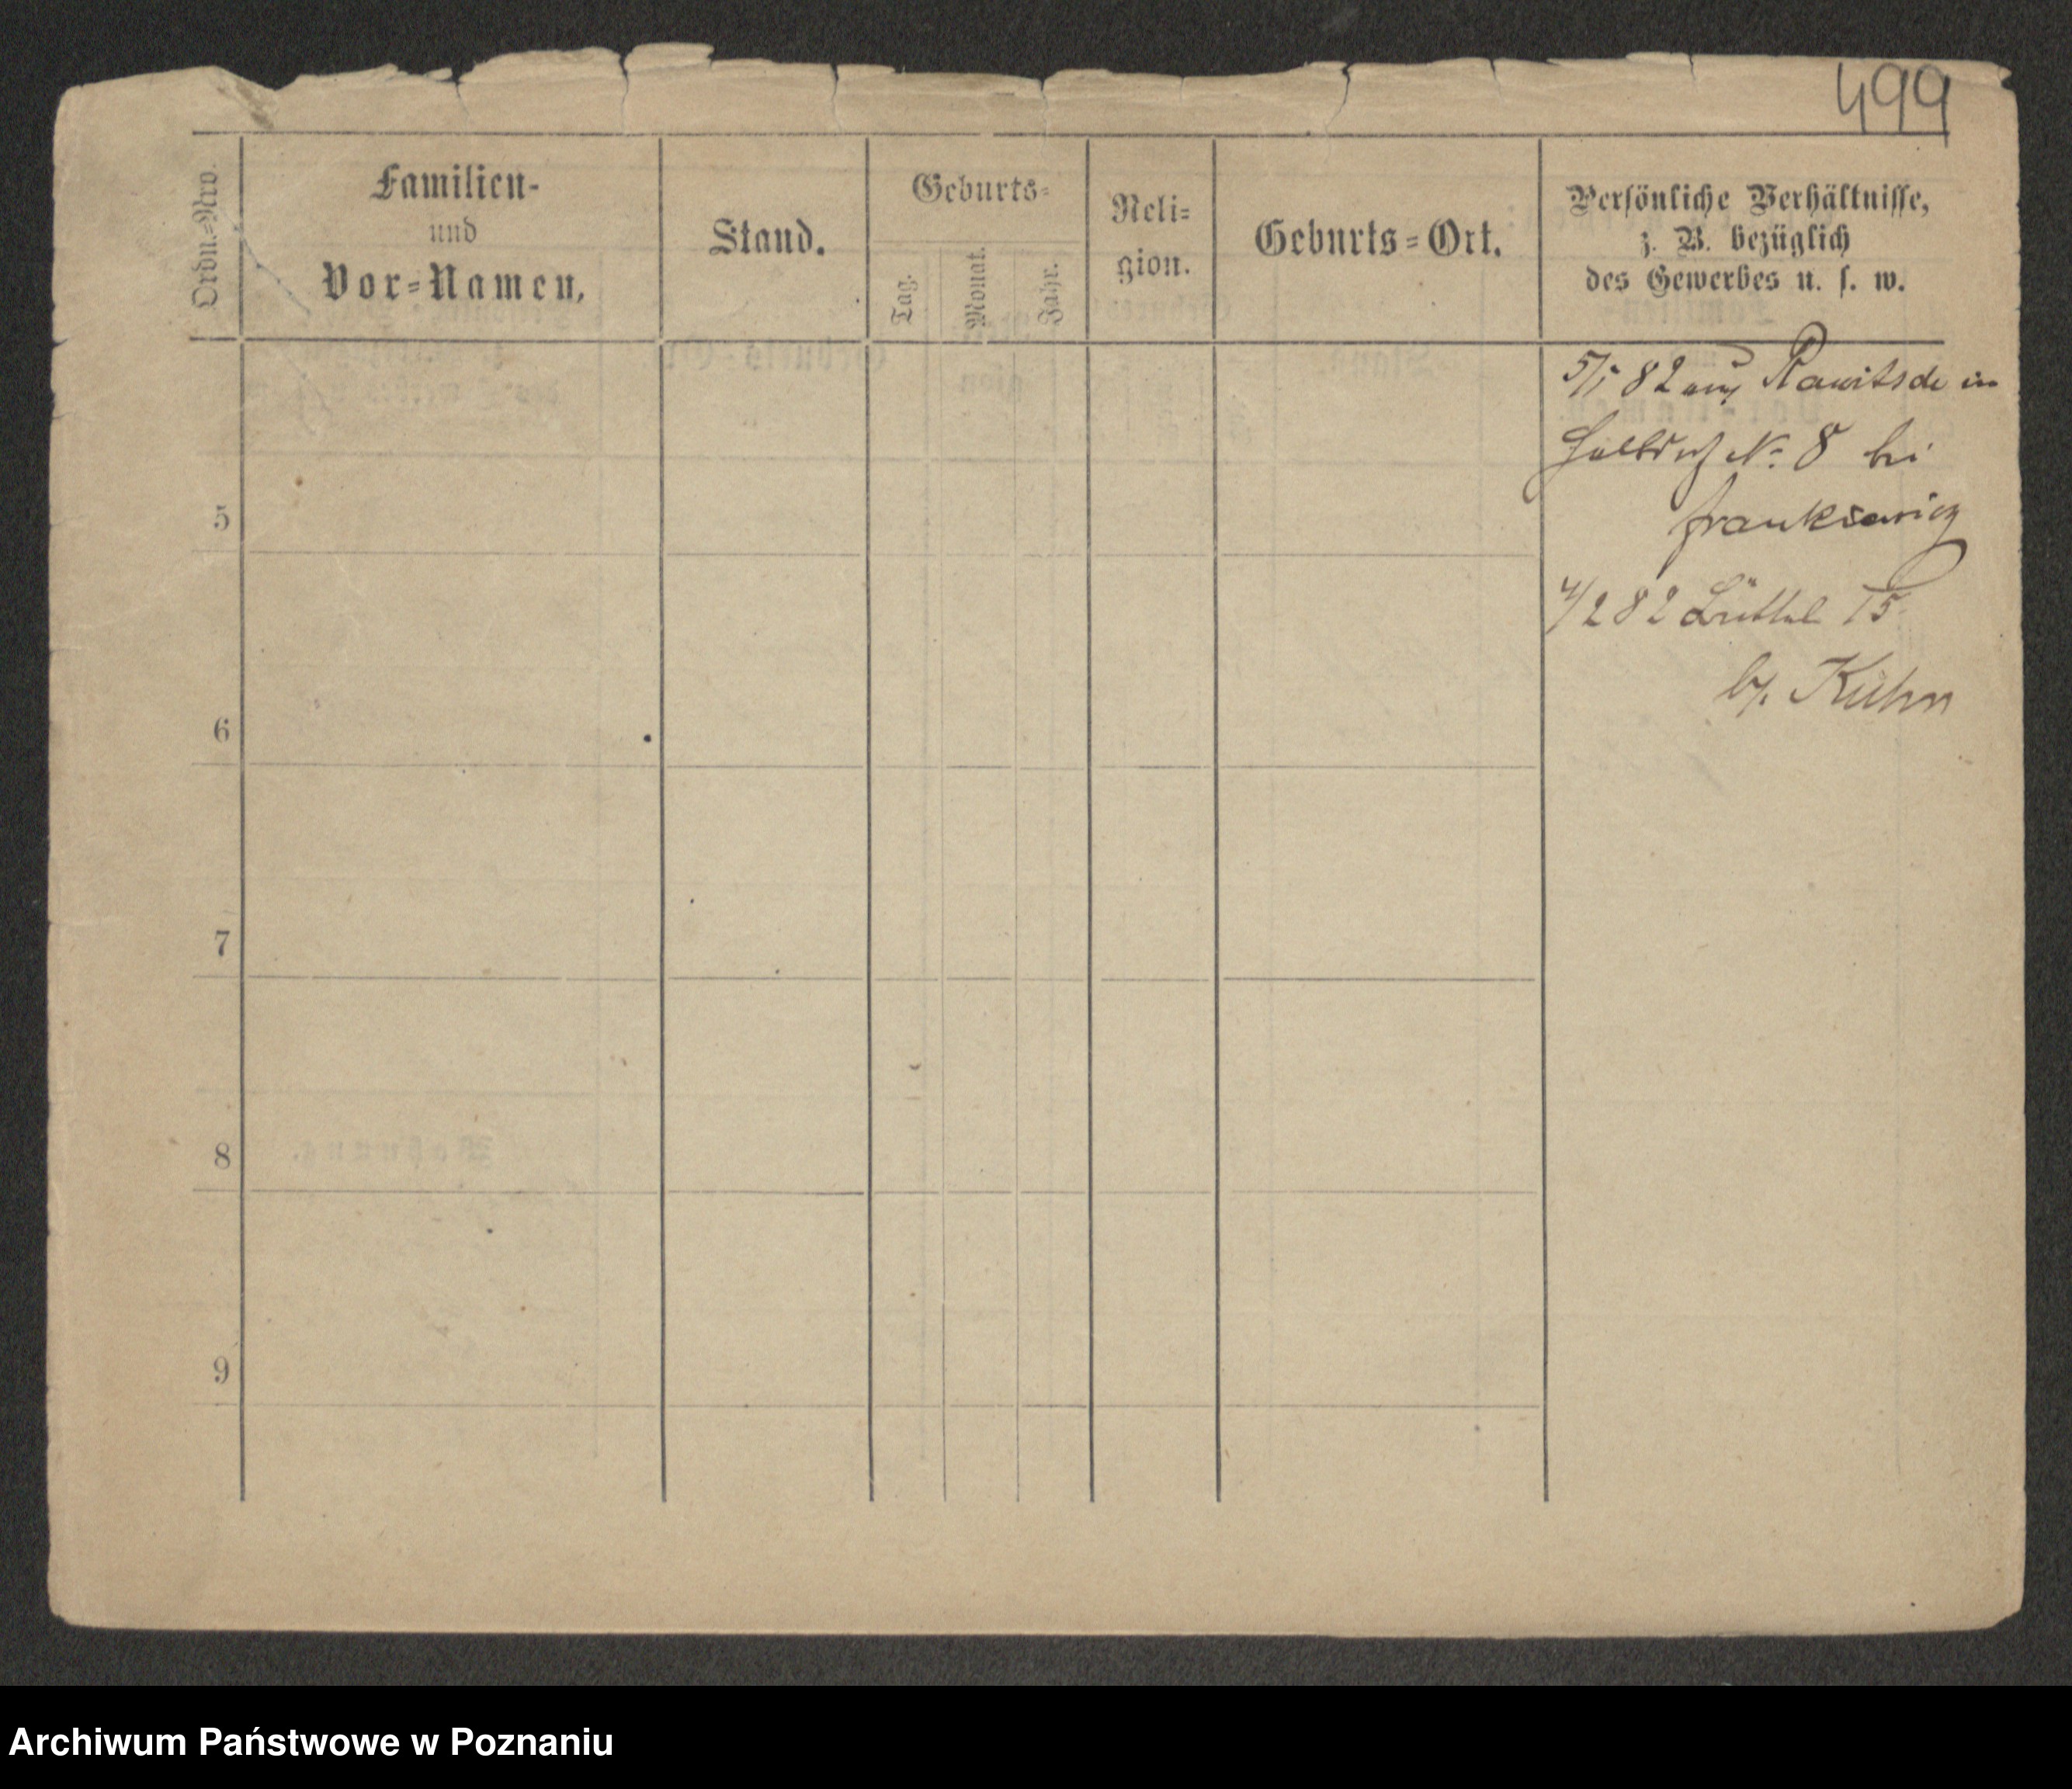 499
Ordn.-Nro.
Familien-
und
Vor-Namen.
Stand.
Geburts-
Tag.
Monat.
Jahr.
Reli-
gion.
Geburts-Ort.
Persönliche Verhältnisse,
z. B. bezüglich
des Gewerbes u. s. w.
5/1 82 aus Rawitsch in
No. 8 bei
Frankiewicz
4/2 82 15
b/. Kühn
5
6
7
8
9
Archiwum Państwowe w Poznaniu